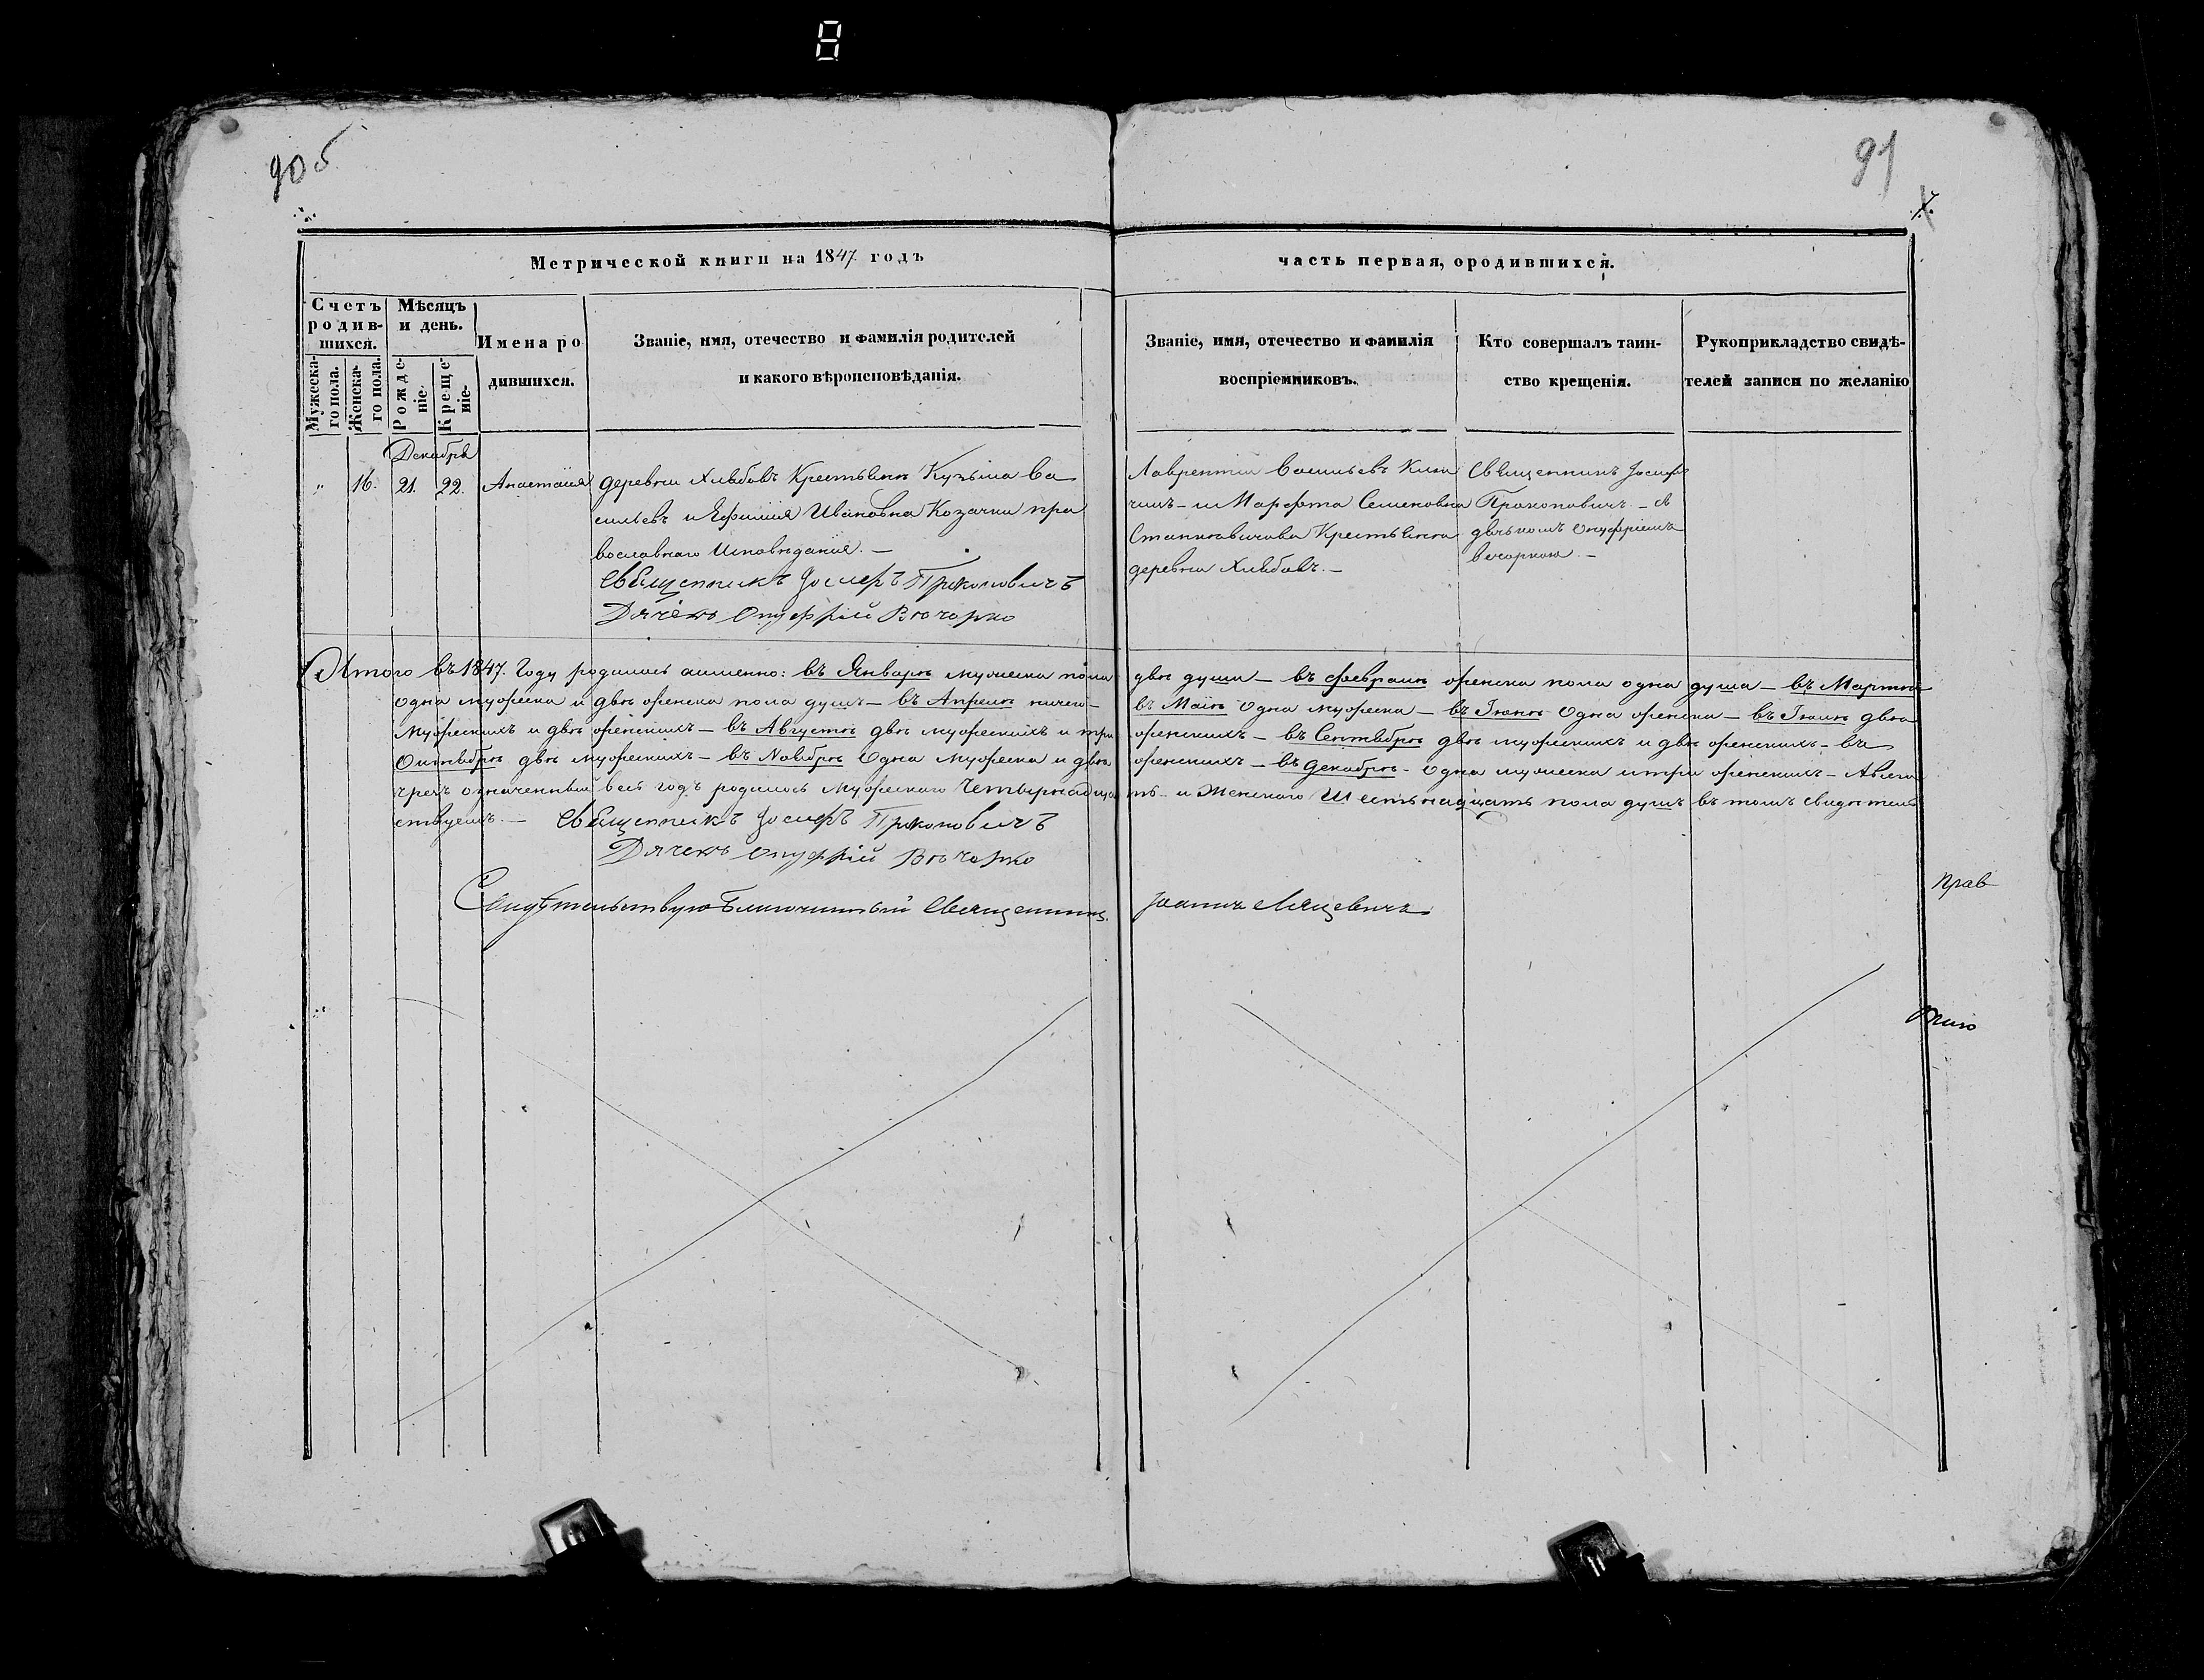 90 об
91
7.
Метрической книги на 1847 годъ
часть первая, ородившихся.
Счетъ родив-шихся.
Мѣсяцъ и день.
Мужеска-го пола.
Женска-го пола.
Рожде-ніе.
Креще-ніе.
Имена ро-
дившихся.
Званіе, имя, отечество и фамилія родителей
и какого вѣроисповѣданія.
Званіе, имя, отечество и фамилія
воспріемниковъ.
Кто совершалъ таин-
ство крещенія.
Рукоприкладство свидѣ-
телей записи по желанію
Декабрь
" 16. 21. 22. Анастасія
деревни Хлябовъ Крестьянъ Кузьма Ва
сильевъ и Ефимия Ивановна Козачки пра
вославнаго Исповѣданія. —
Священникъ Іосифъ Прокоповичъ
Дячекъ Онуфрій Вечорко
Лаврентій Васильевъ
чикъ — и Марфта Семеновна
Станкевичова Крестьянка
деревни Хлябовъ. —
Священникъ Іосифъ
Прокоповичъ. — съ
дьячкомъ Онуфріемъ
Вечоркою. —
Итого въ 1847. Году родилось аименно: въ Январѣ мужеска пола двѣ души — въ Февралѣ женска пола одна душа — въ Мартѣ
одна мужеска и двѣ женска пола душъ — въ Апрелѣ ничего — въ Маіѣ одна мужеска — въ Іюнѣ Одна женска — въ Іюлѣ двѣ
Мужескихъ и двѣ женскихъ — въ Августѣ двѣ мужескихъ и три женскихъ — въ Сентябрѣ двѣ мужескихъ и двѣ женскихъ — въ
Октябрѣ двѣ мужескихъ — въ Ноябрѣ Одна мужеска и двѣ женскихъ — въ Декабрѣ — одна мужеска и три женскихъ — Авсего
чрезъ означенный весь годъ родилось Мужескаго Четырнадцать и Женскаго Шестьнадцать пола душъ въ томъ свидѣтель
ствуемъ. — Священникъ Іосифъ Прокоповичъ
Дячекъ Онуфрій Вечорко
Свидѣтельствую Благочинный Священникъ Іоаннъ Ляцевичъ
Прав